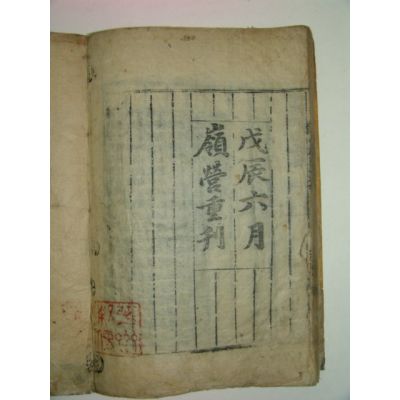 戊辰六月
嶺營重刊